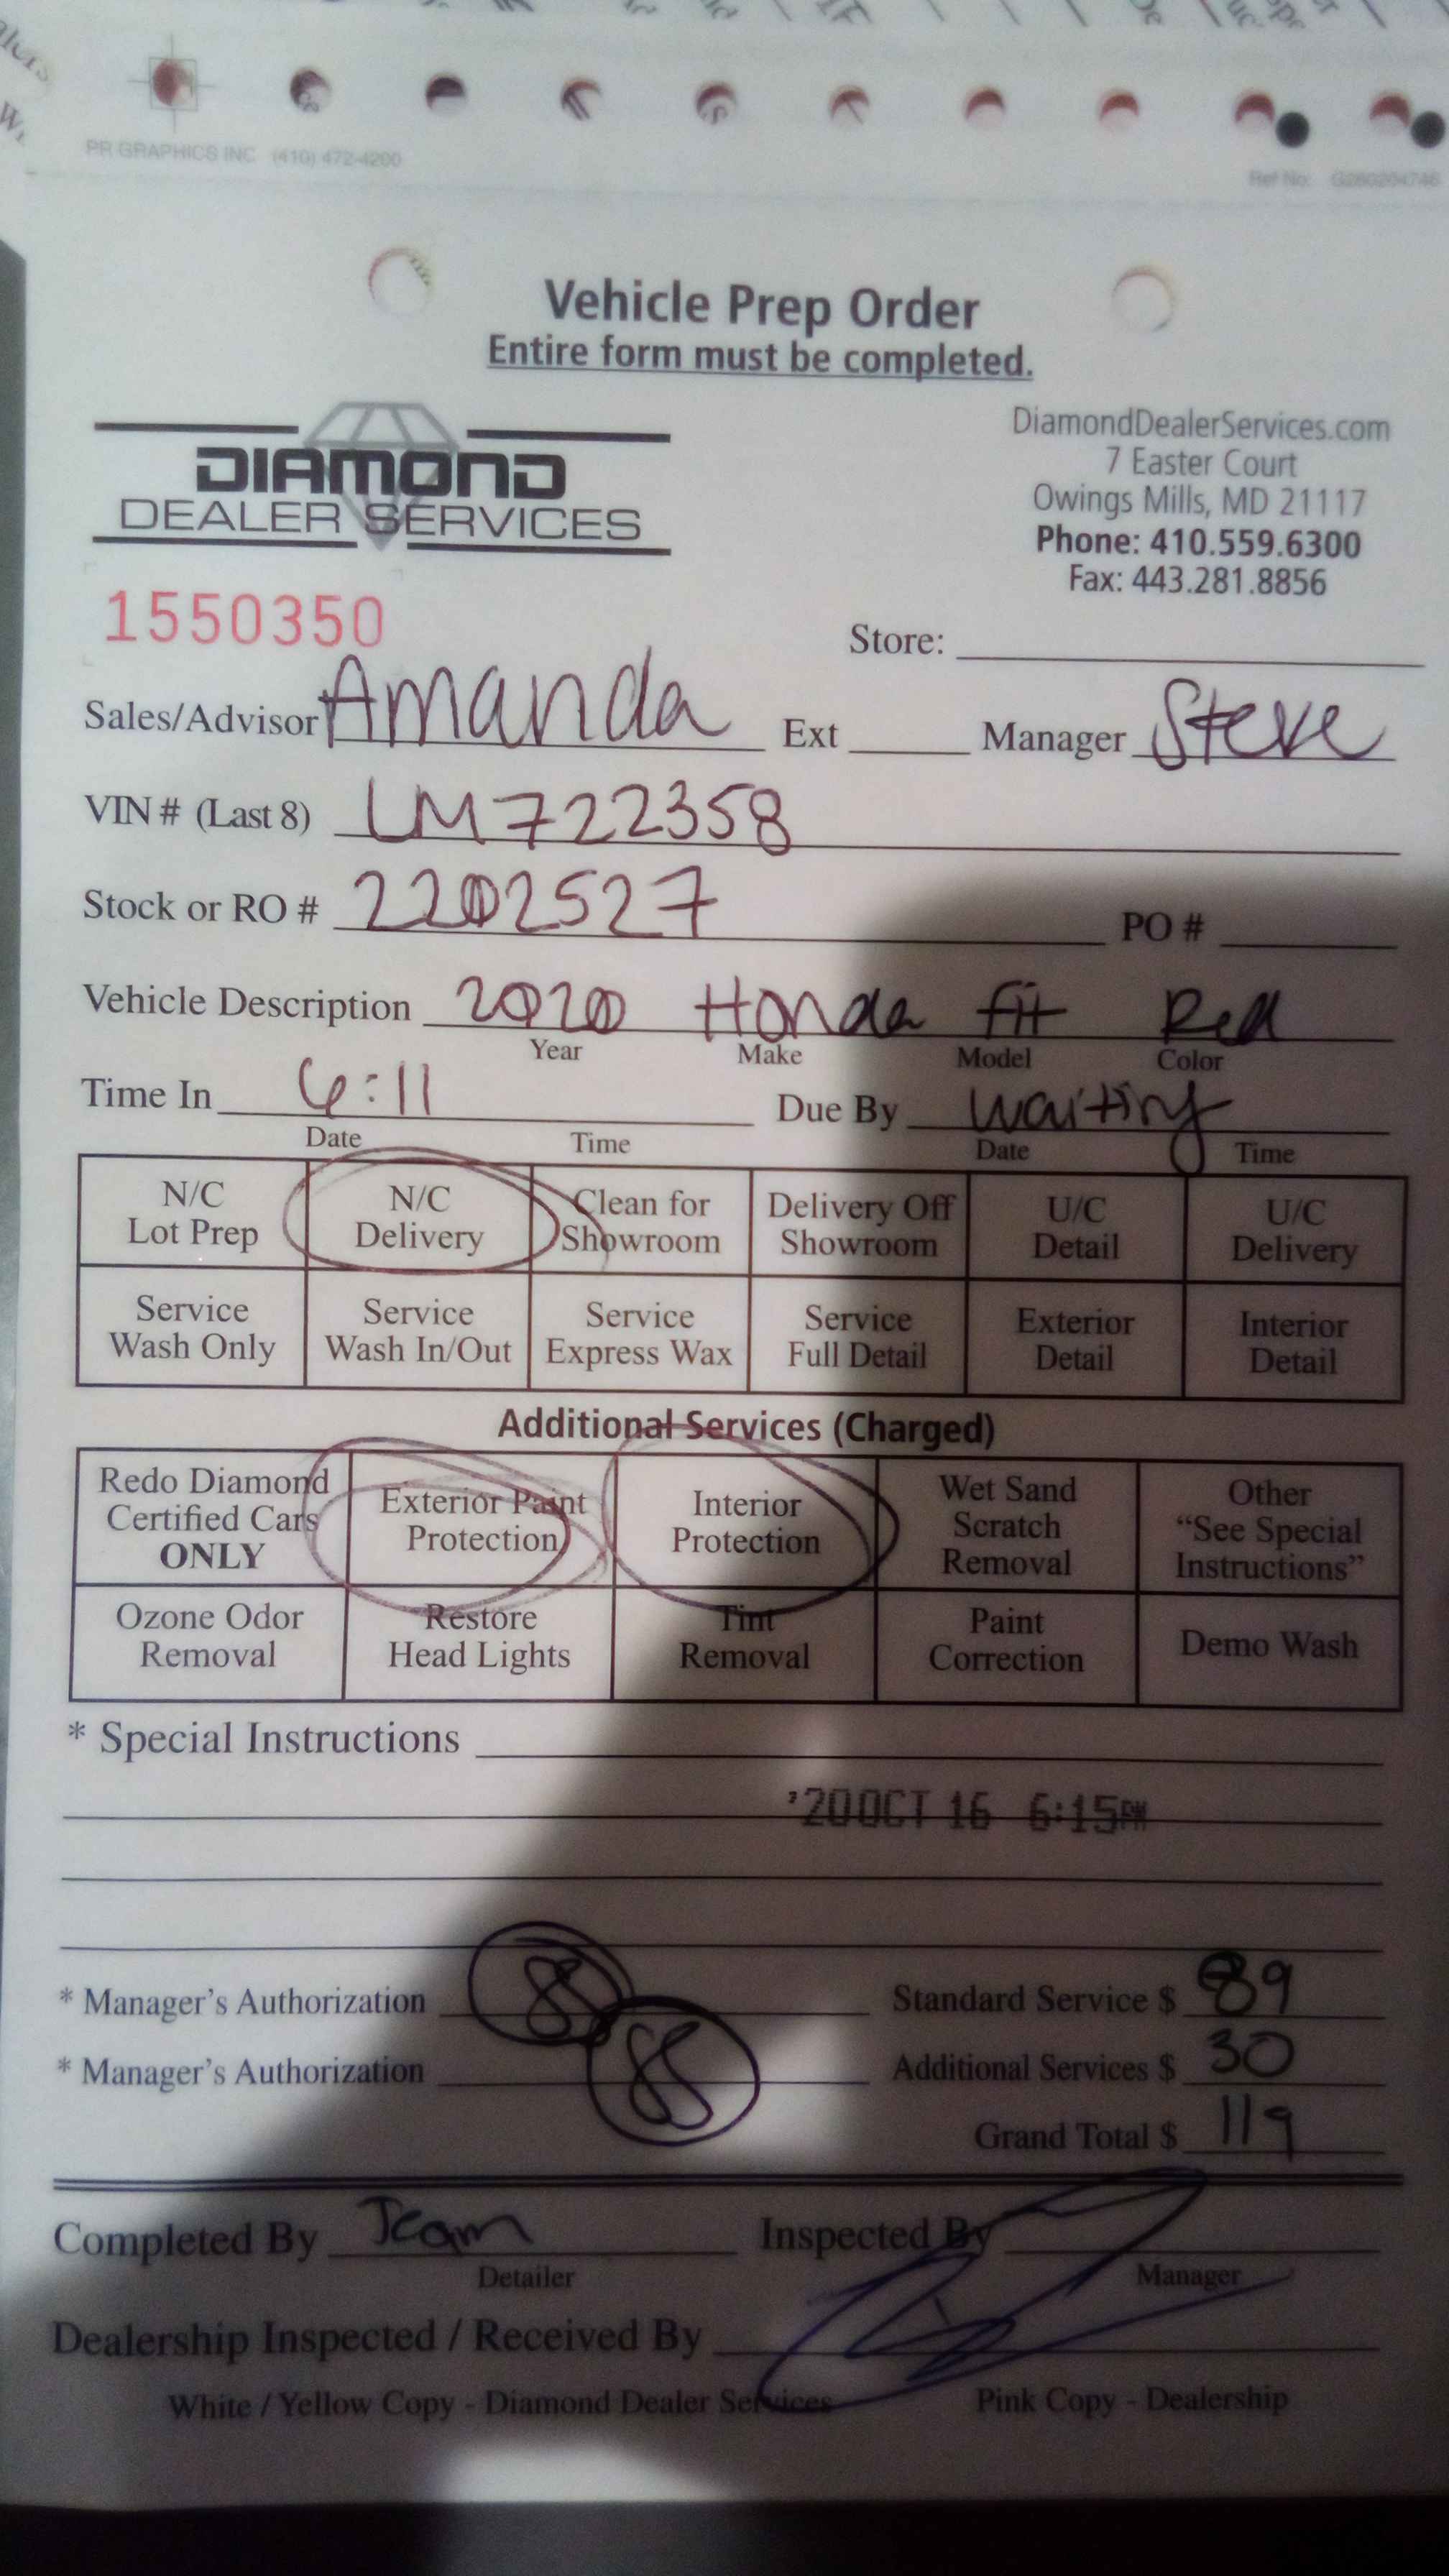 PR GRAPHICS INC (410) 472-4200
Ref No: G260204746
Vehicle Prep Order
Entire form must be completed.
DIAMOND
DEALER SERVICES
DiamondDealerServices.com
7 Easter Court
Owings Mills, MD 21117
Phone: 410.559.6300
Fax: 443.281.8856
1550350
Store:
Sales/Advisor Amanda Ext Manager Steve
VIN # (Last 8) LM722358
Stock or RO # 2202527 PO #
Vehicle Description 2020 Honda Fit Red
Year Make Model Color
Time In 6:11 Due By waiting
Date Time Date Time
N/C Lot Prep N/C Delivery Clean for Showroom Delivery Off Showroom U/C Detail U/C Delivery
Service Wash Only Service Wash In/Out Service Express Wax Service Full Detail Exterior Detail Interior Detail
Additional Services (Charged)
Redo Diamond Certified Cars ONLY Exterior Paint Protection Interior Protection Wet Sand Scratch Removal Other "See Special Instructions"
Ozone Odor Removal Restore Head Lights Tint Removal Paint Correction Demo Wash
* Special Instructions
'20 OCT 16 6:15PM
* Manager's Authorization Standard Service $ 89
* Manager's Authorization Additional Services $ 30
Grand Total $ 119
Completed By Team Inspected By
Detailer Manager
Dealership Inspected / Received By
White / Yellow Copy - Diamond Dealer Services Pink Copy - Dealership